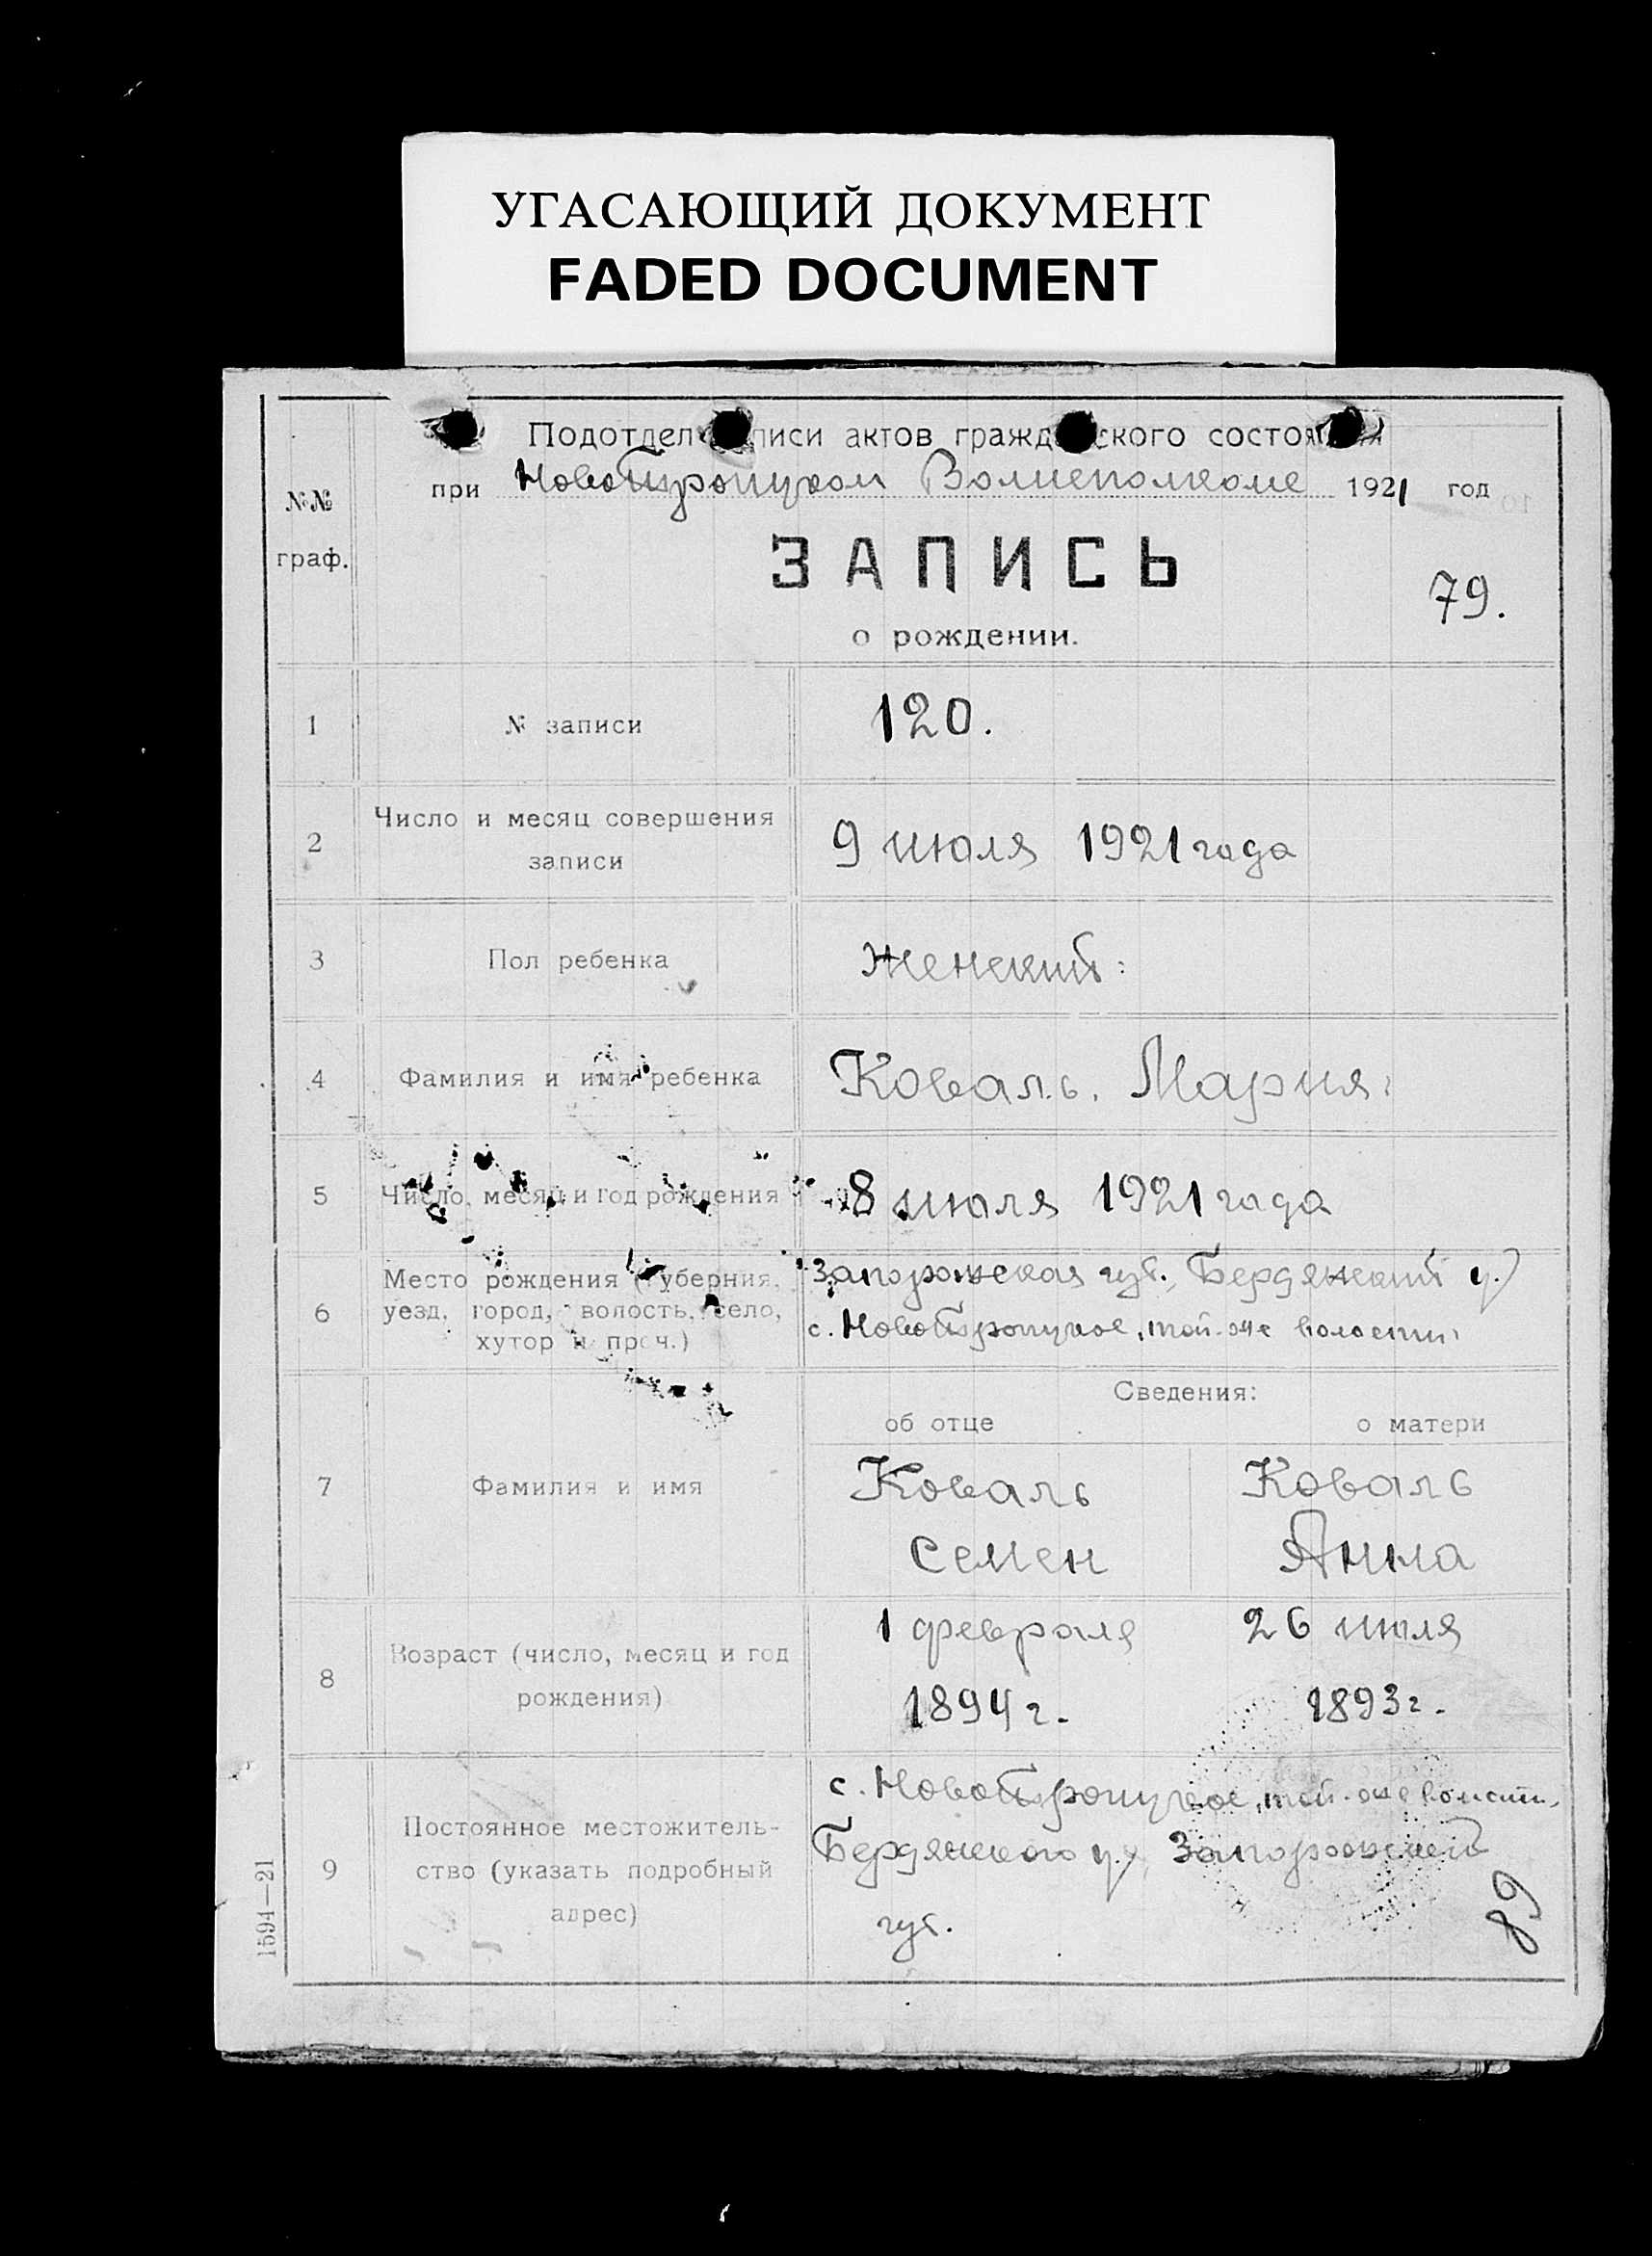 УГАСАЮЩИЙ ДОКУМЕНТ
FADED DOCUMENT
Подотдел записи актов гражданского состояния
при Новотроицком Волисполкоме 1921 год
№№
граф.
ЗАПИСЬ
79.
о рождении.
1 № записи 120.
2 Число и месяц совершения
записи
9 июля 1921 года
3 Пол ребенка Женский:
4 Фамилия и имя ребенка Коваль. Мария:
5 Число, месяц и год рождения 8 июля 1921 года
6 Место рождения (губерния,
уезд, город, волость, село,
хутор и проч.)
Запорожская губ., Бердянский у.
с. Новотроицкое, той-же волости
Сведения:
об отце о матери
7 Фамилия и имя
Коваль Коваль
Семен Анна
8 Возраст (число, месяц и год
рождения)
1 февраля 26 июля
1894 г. 1893 г.
9 Постоянное местожитель-
ство (указать подробный
адрес)
с. Новотроицкое, той-же волости,
Бердянского у. Запорожской
губ.
89
1594—21